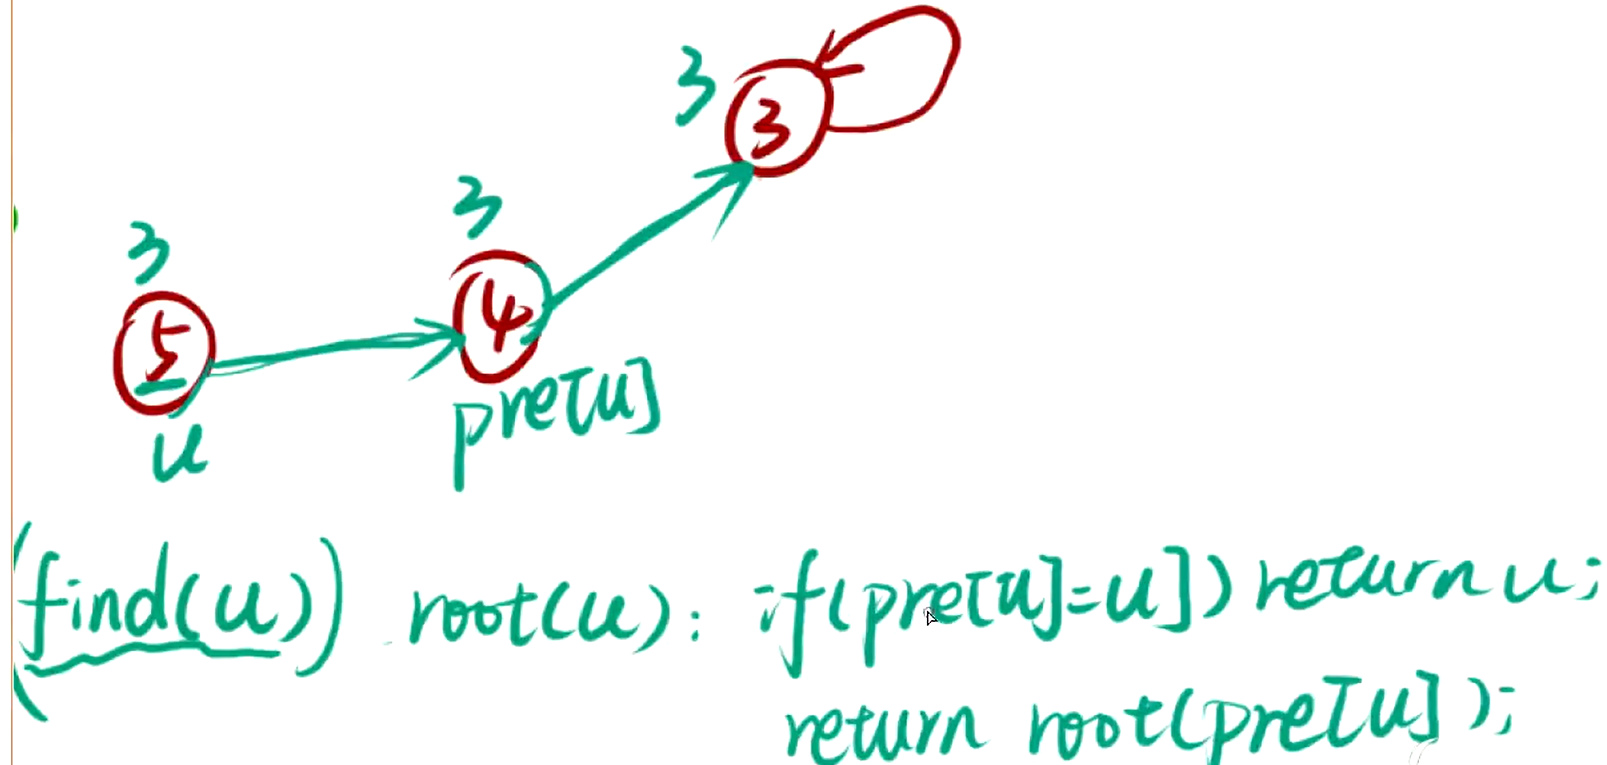 3
3
3
3
4
5
pre[u]
u
(find(u)) root(u): if(pre[u]=u]) return u;
return root(pre[u]);